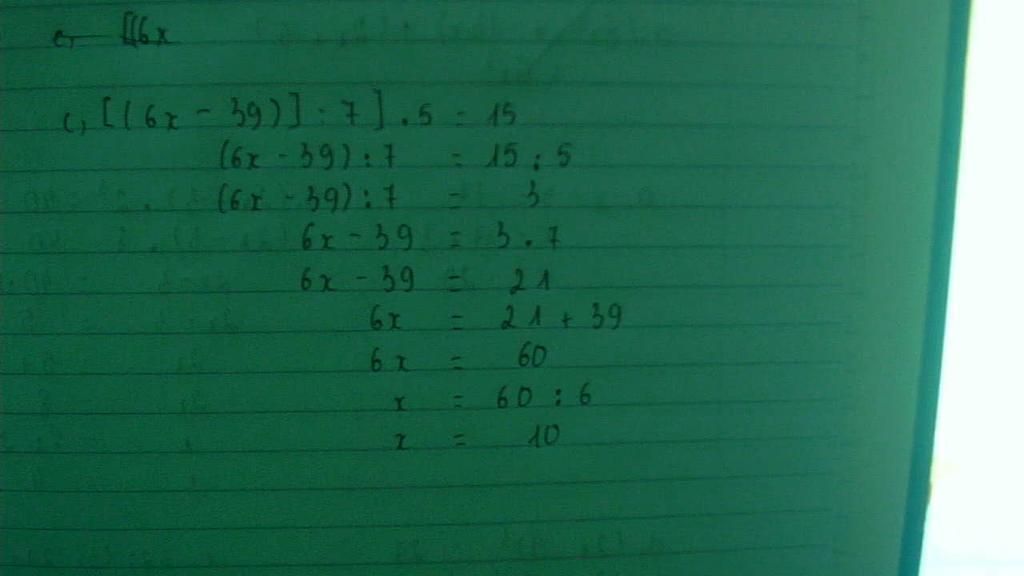 c, [(6x
c, [(6x - 39)] : 7] . 5 = 15
(6x - 39) : 7 = 15 : 5
(6x - 39) : 7 = 3
6x - 39 = 3 . 7
6x - 39 = 21
6x = 21 + 39
6x = 60
x = 60 : 6
x = 10